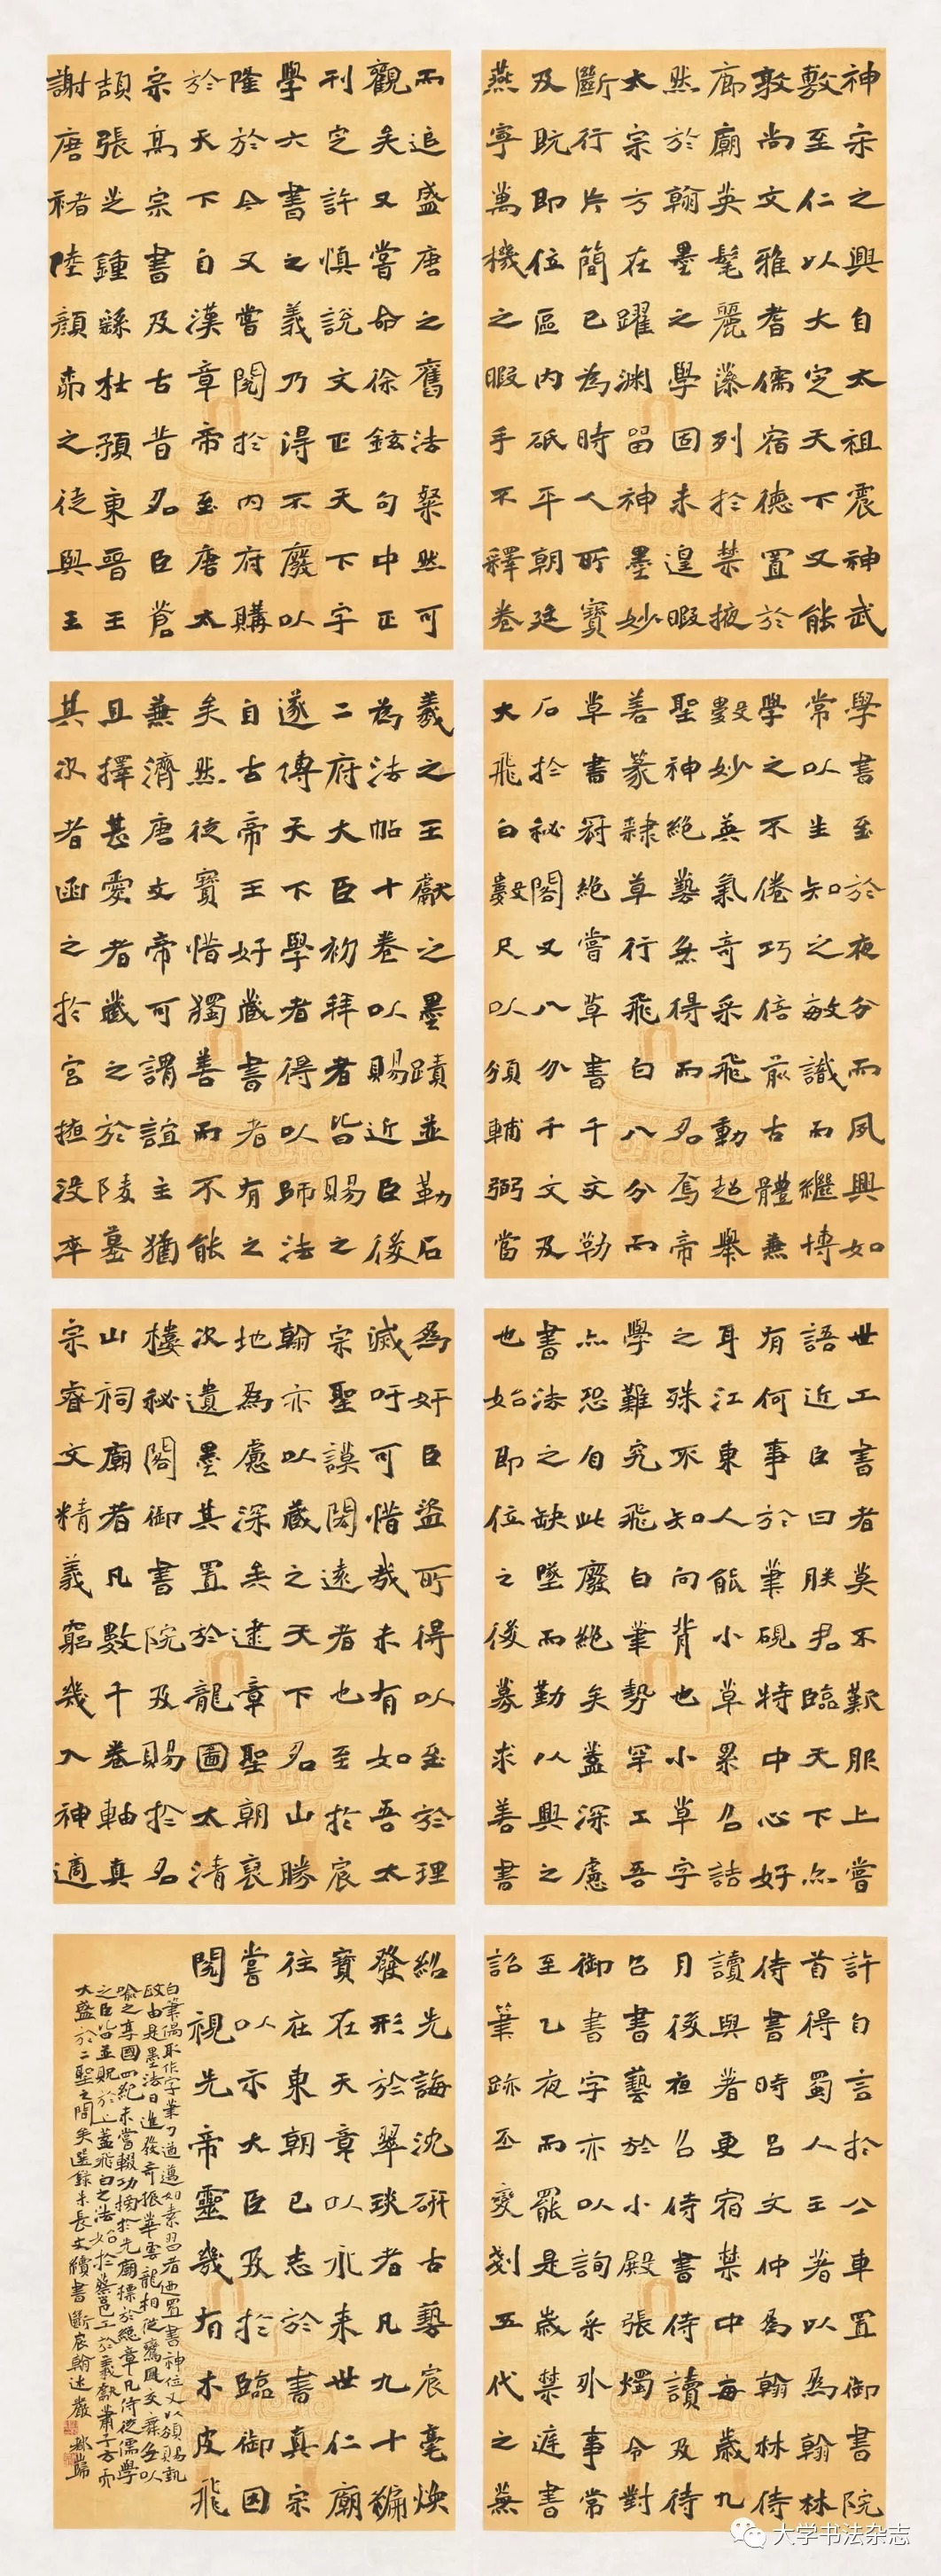 神宗之興自太祖震神武
敷至仁以大定天下又能
敦尚文雅耆儒宿德置於
廊廟英髦麗藻列於禁掖
然於翰墨之學固未遑暇
太宗方在躍淵留神墨妙
斷行片簡已為時人所寶
及既即位區內砥平朝廷
燕寧萬機之暇手不釋卷
學書至於夜分而夙興如
常以生知之敏識而繼博
學之不倦巧倍前古體兼
數妙英氣奇采飛動超舉
聖神絕藝無得而名焉帝
善篆隸草行飛白八分而
草書冠絕嘗草書千文勒
石於秘閣又八分千文及
大飛白數尺以頒輔弼當
世工書者莫不歎服上嘗
語近臣曰朕君臨天下亦
有何事於筆硯特中心好
耳江東人能小草累召詰
之殊不知向背也小草字
學難究飛白筆勢罕工吾
亦恐自此廢絕矣蓋深慮
書法之缺墜而勤以興之
也始即位之後募求善書
許自言於公車置御書院
首得蜀人王著以為翰林
侍書時呂文仲為翰林侍
讀與著更宿禁中每歲九
月後夜召侍書侍讀及待
召書藝於小殿張燭令對
御書字亦以詢采外事常
至乙夜而罷是歲禁庭書
詔筆跡丕變剗五代之蕪
而追盛唐之舊法粲然可
觀矣又嘗命徐鉉句中正
刊定許慎說文正天下字
學六書之義乃得不廢以
隆於今又嘗閱於內府購
於天下自漢章帝至唐太
宗高宗書及古昔名臣蒼
頡張芝鍾繇杜預東晉王
謝唐褚陸顏柳之徒與王
羲之王獻之墨蹟並勒石
為法帖十卷以賜近臣後
二府大臣初拜者皆賜之
遂傳天下學者得以師法
自古帝王好藏書者有之
矣然徒寶惜獨善而不能
兼濟唐文帝可謂誼主猶
且擇甚愛者藏之於陵墓
其次者函之於宮掖沒卒
為奸臣盜所得以至於理
滅吁可惜哉未有如吾太
宗聖謨閎遠者也至於宸
翰亦以藏之天下名山勝
地為慮深矣逮章聖朝裒
次遺墨其置於龍圖太清
樓秘閣御書院及賜於名
山祠廟者凡數千卷軸真
宗睿文精義窮幾入神適
紹先誨沈研古藝宸毫煥
發形於翠琰者凡九十編
寶在天章以永來世仁廟
往在東朝已志於書真宗
嘗以示大臣及於臨御因
閱視先帝靈幾有木皮飛
白筆偶取作字筆力遒邁如素習者迺置書神位又以頒賜執
政由是墨法日進發奇振華雲龍相從鸞鳳交舞無以
喻之享國四紀未嘗輟功摛於先廟標於絕章凡侍從儒學
之臣皆並貺於上蓋飛白之法始於蔡邕工於羲獻蕭子云而
大盛於二聖之間矣選錄朱長文續書斷宸翰述嚴
大学书法杂志